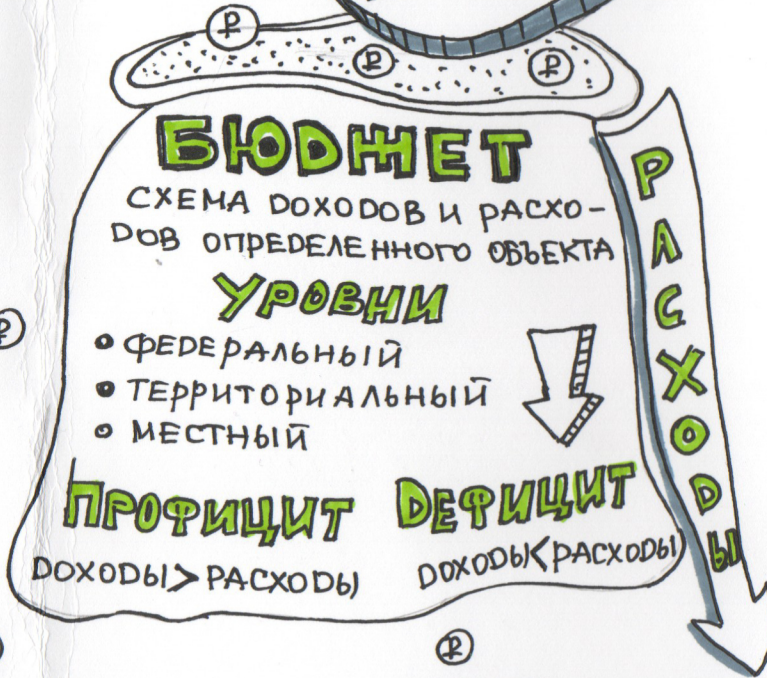 ₽
₽ ₽
БЮДЖЕТ
СХЕМА ДОХОДОВ И РАСХО-
ДОВ ОПРЕДЕЛЕННОГО ОБЪЕКТА
УРОВНИ
₽
ФЕДЕРАЛЬНЫЙ
ТЕРРИТОРИАЛЬНЫЙ
МЕСТНЫЙ
ПРОФИЦИТ
ДОХОДЫ>РАСХОДЫ
ДЕФИЦИТ
ДОХОДЫ<РАСХОДЫ
РАСХОДЫ
₽